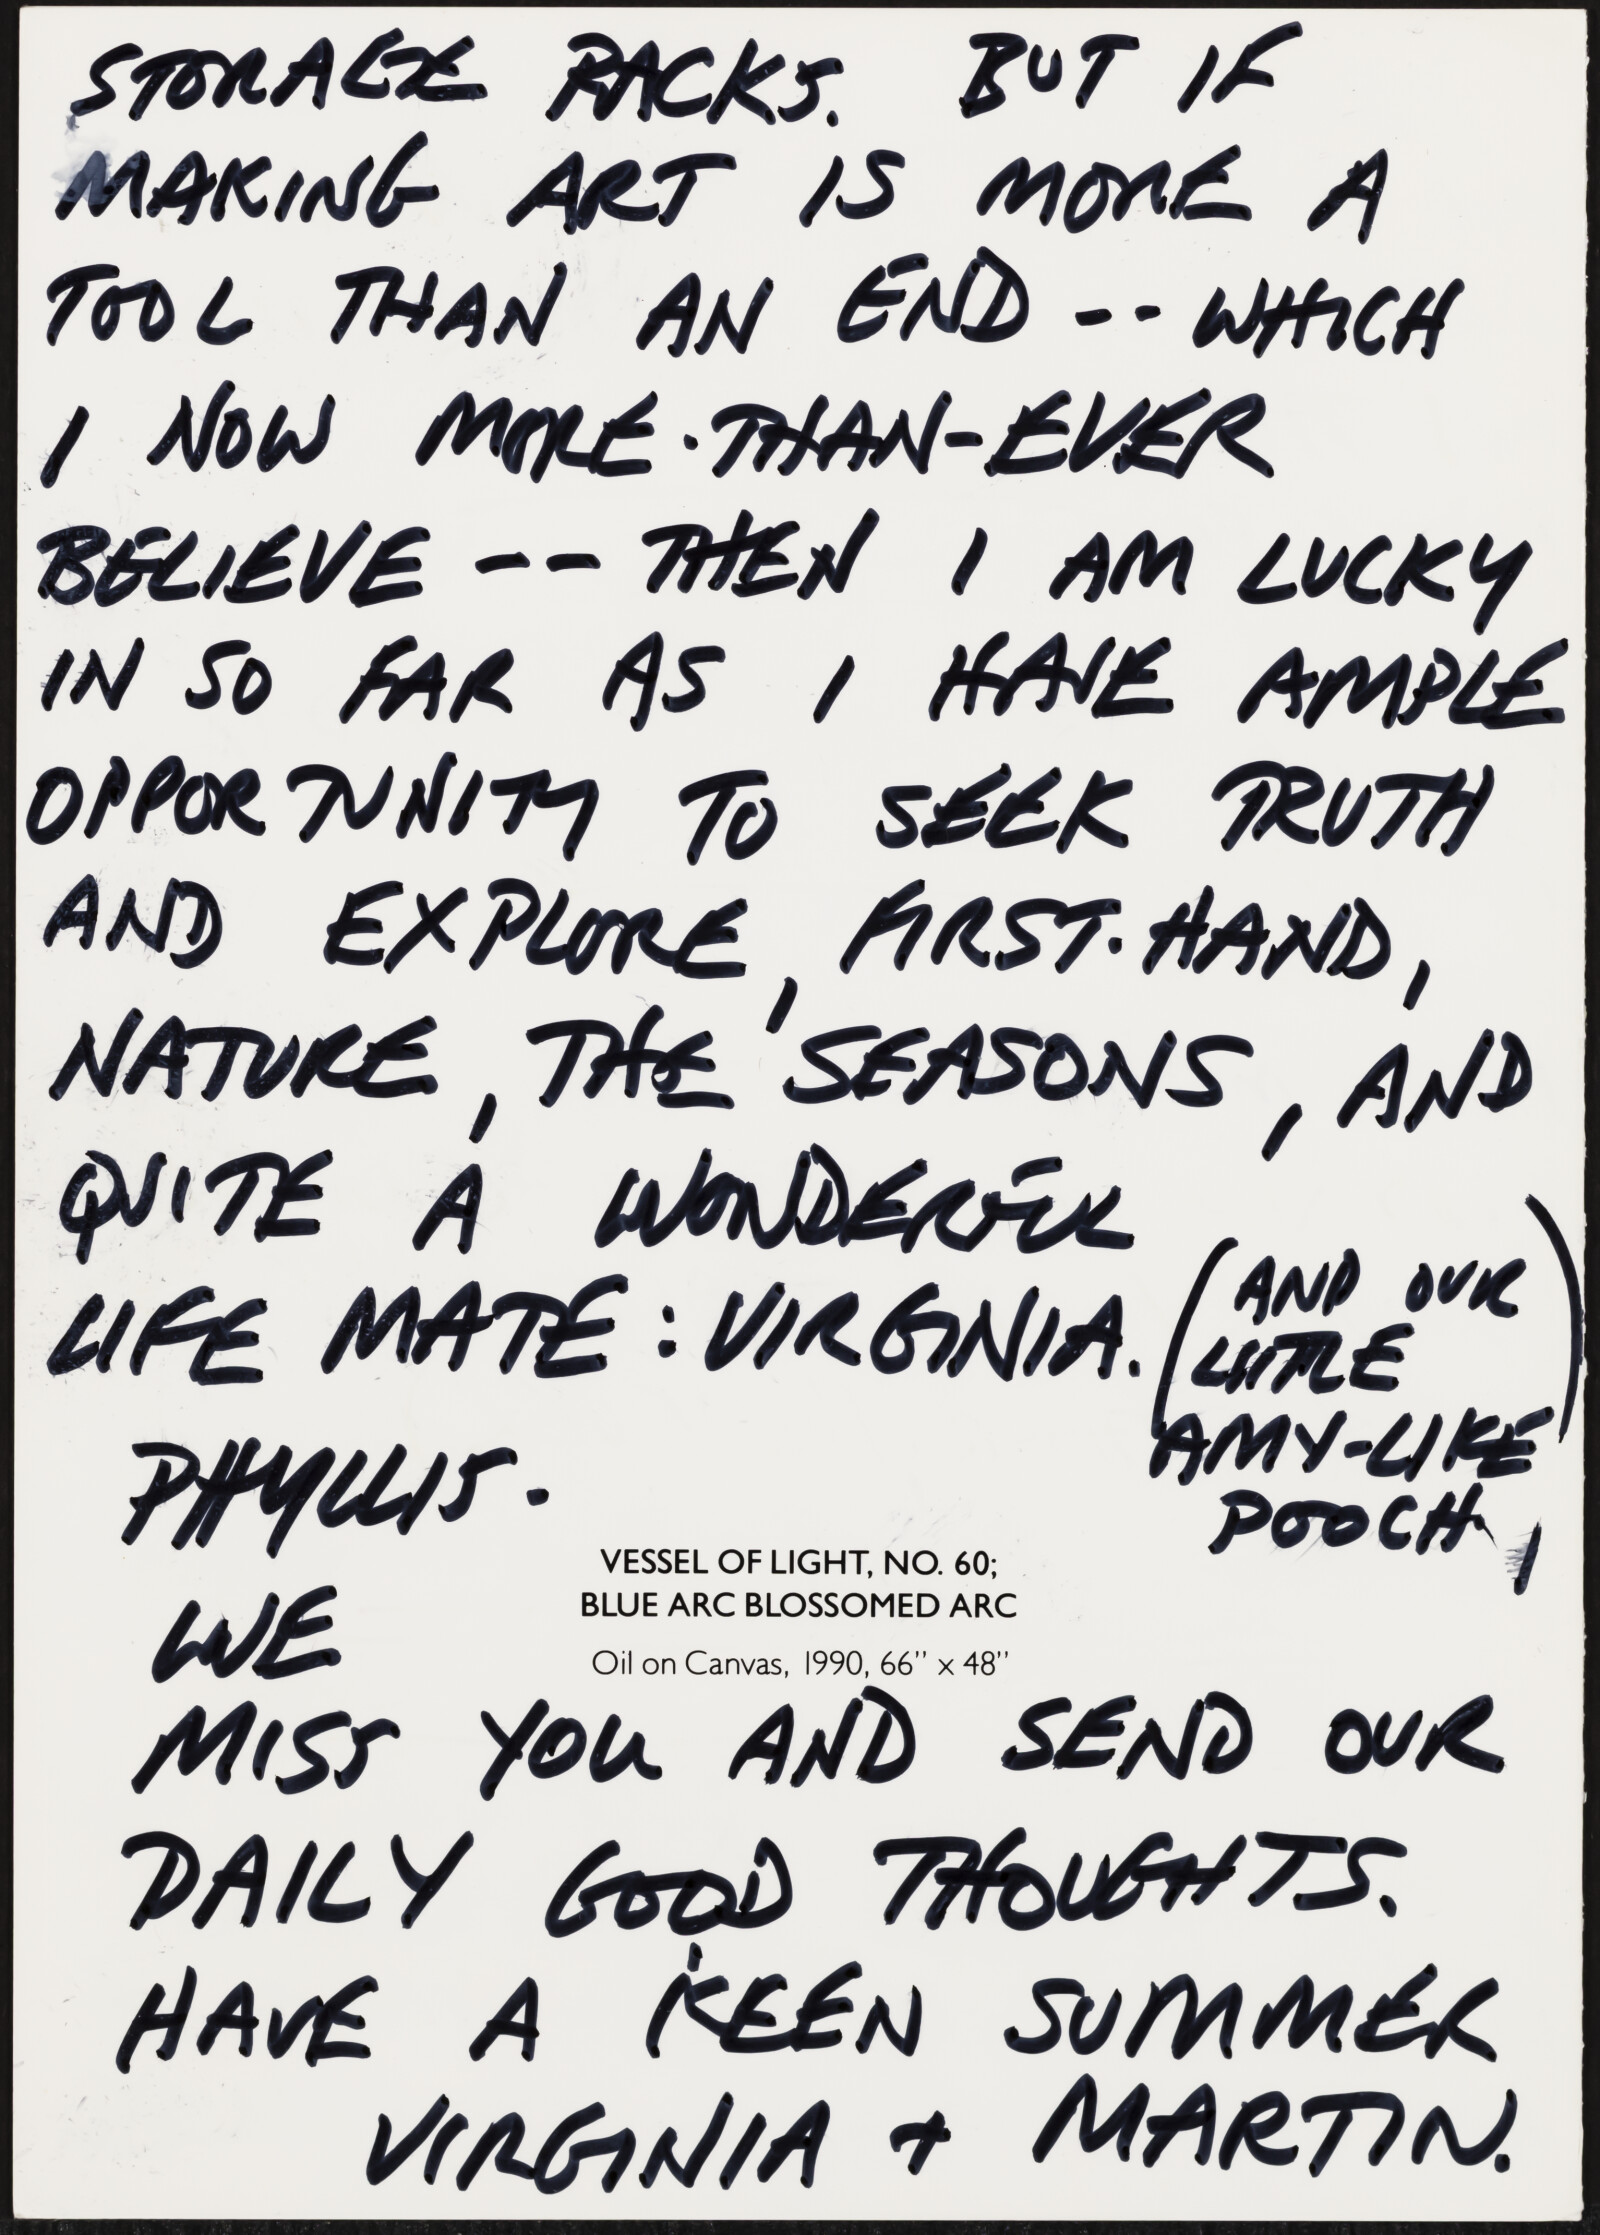 STORAGE RACKS. BUT IF
MAKING ART IS MORE A
TOOL THAN AN END -- WHICH
I NOW MORE-THAN-EVER
BELIEVE -- THEN I AM LUCKY
IN SO FAR AS I HAVE AMPLE
OPPORTUNITY TO SEEK TRUTH
AND EXPLORE, FIRST-HAND,
NATURE, THE SEASONS, AND
QUITE A WONDERFUL
LIFE MATE: VIRGINIA.
(AND OUR
LITTLE
AMY-LIKE
POOCH)
PHYLLIS.
VESSEL OF LIGHT, NO. 60;
BLUE ARC BLOSSOMED ARC
Oil on Canvas, 1990, 66" x 48"
WE
MISS YOU AND SEND OUR
DAILY GOOD THOUGHTS.
HAVE A KEEN SUMMER
VIRGINIA + MARTIN.